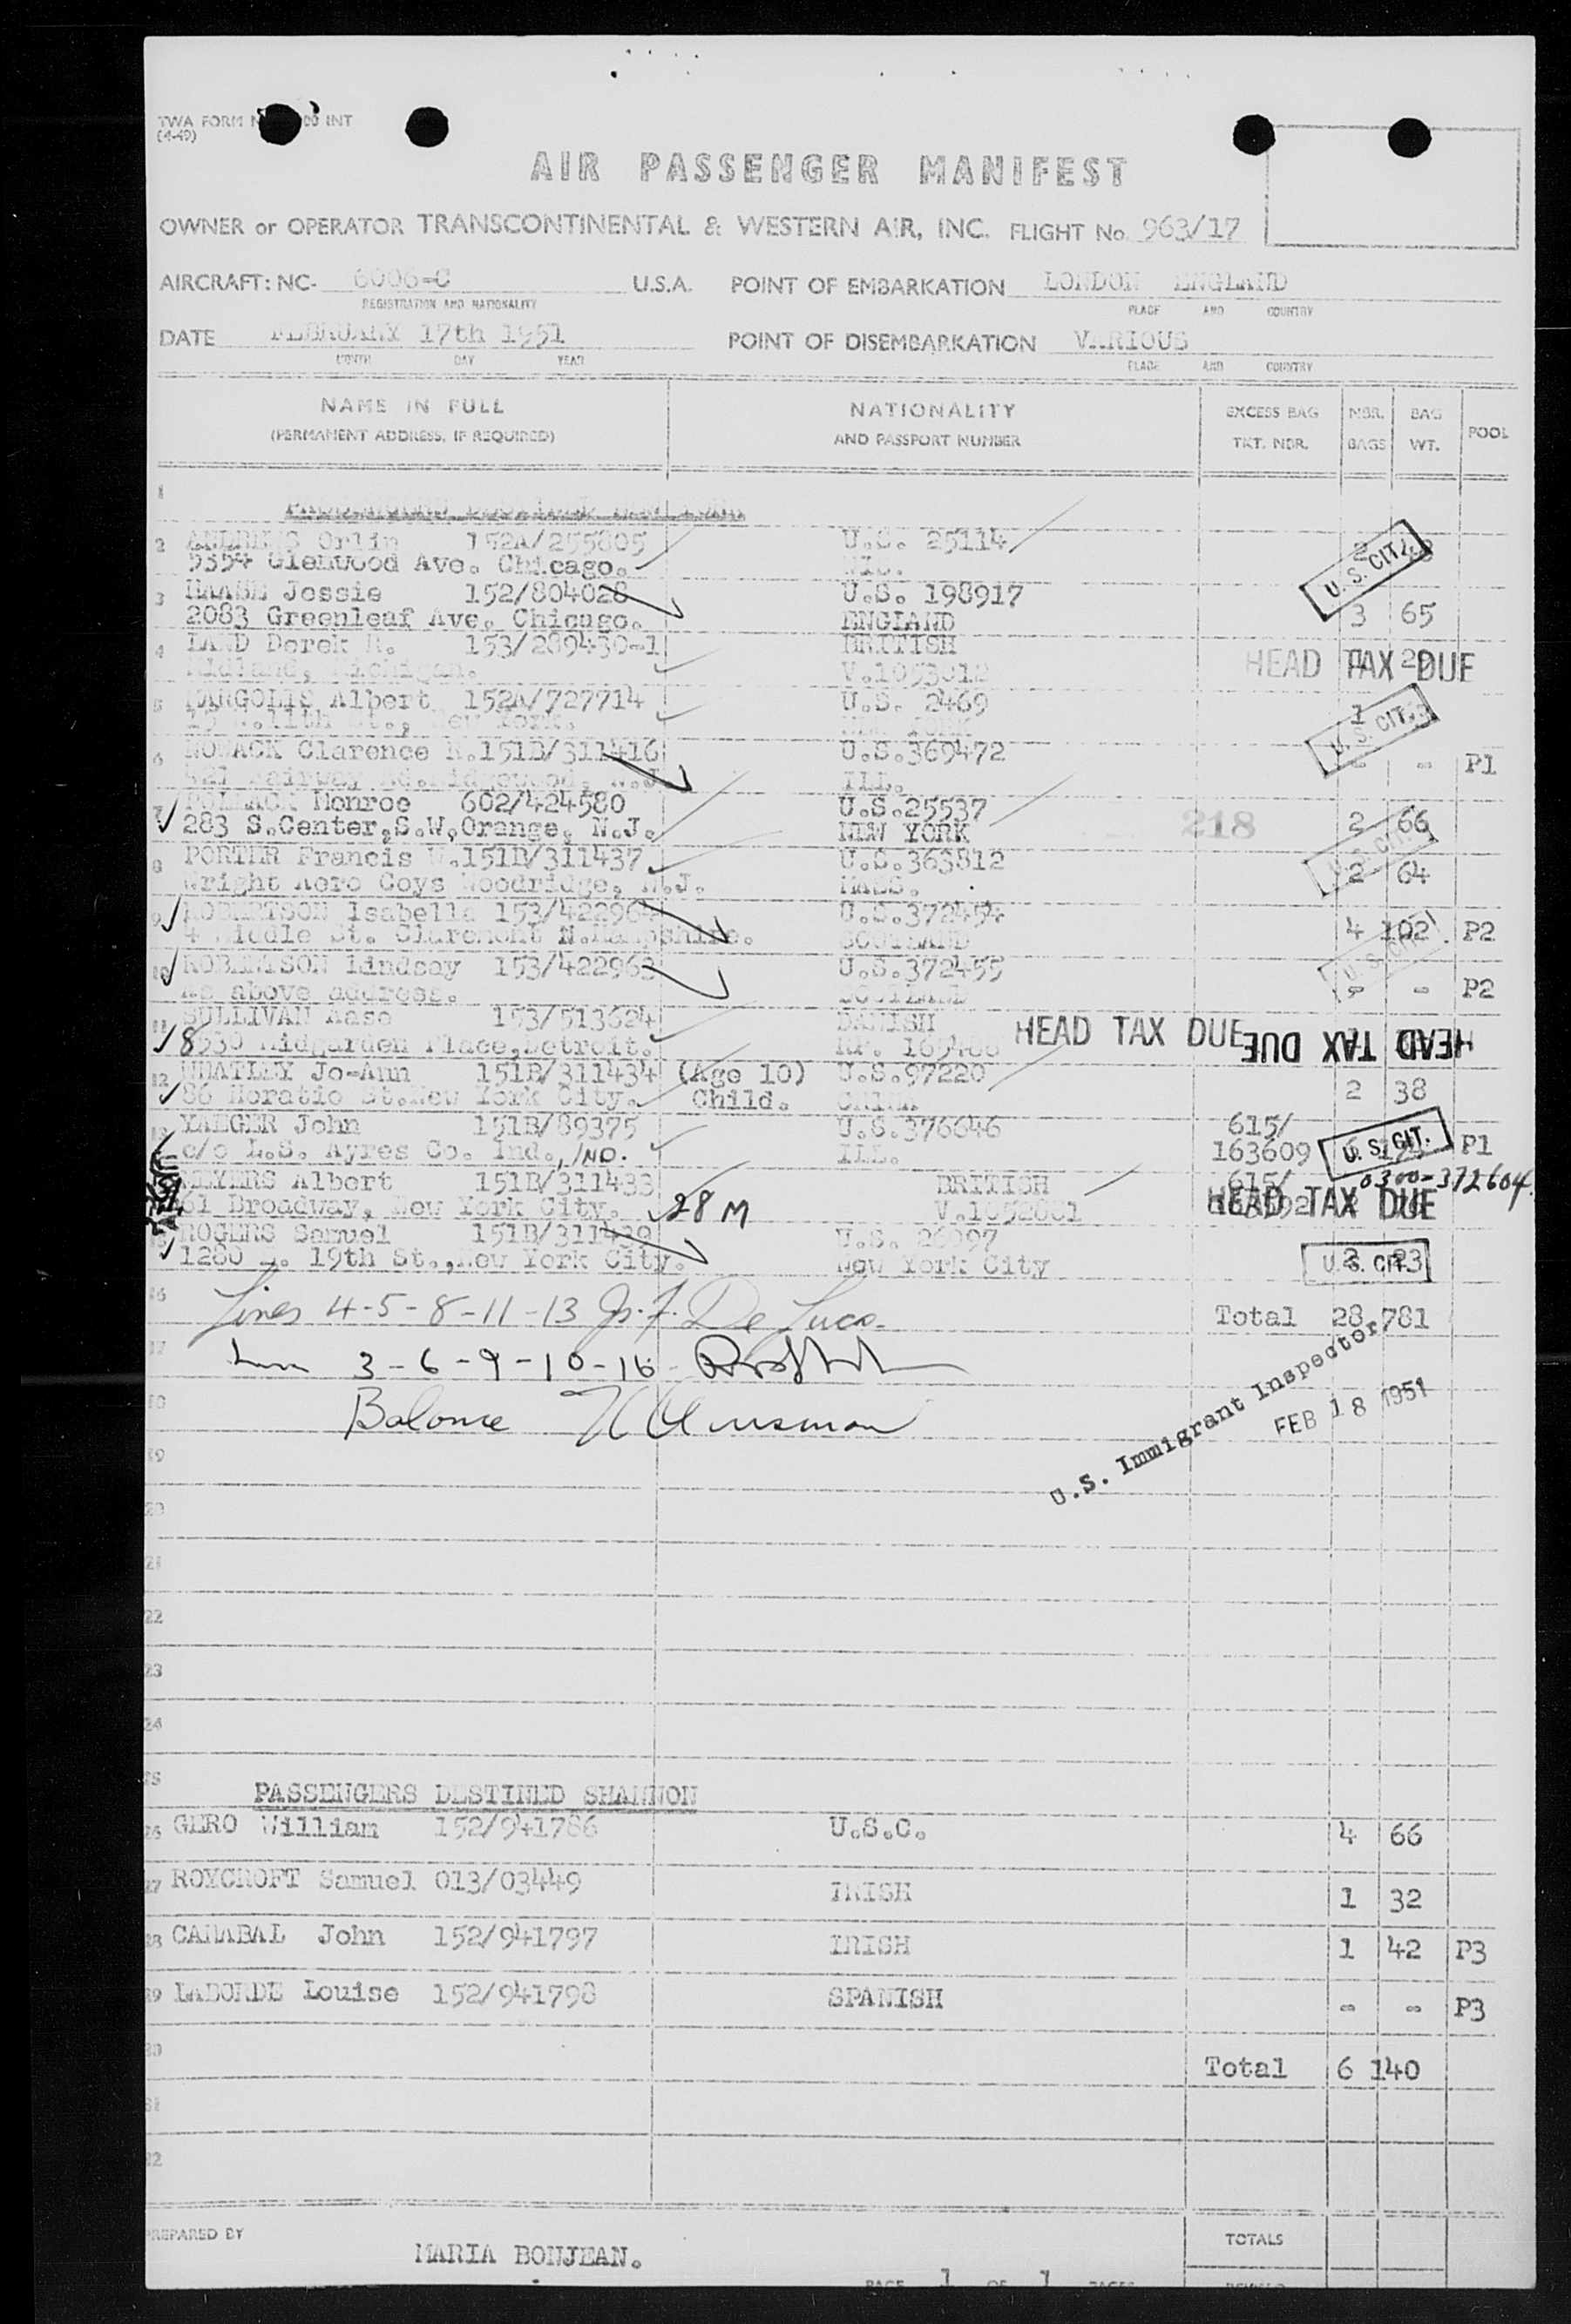 TWA FORM INT
(4-49)
AIR PASSENGER MANIFEST
OWNER or OPERATOR TRANSCONTINENTAL & WESTERN AIR, INC. FLIGHT No. 963/17
AIRCRAFT: NC- 6006-C U.S.A. POINT OF EMBARKATION LONDON ENGLAND
REGISTRATION AND NATIONALITY PLACE AND COUNTRY
DATE FEBRUARY 17th 1951 POINT OF DISEMBARKATION VARIOUS
MONTH DAY YEAR PLACE AND COUNTRY
NAME IN FULL NATIONALITY EXCESS BAG NBR. BAG POOL
(PERMANENT ADDRESS, IF REQUIRED) AND PASSPORT NUMBER TKT. NBR. BAGS WT.
1
2 Orlin 152A/255805 U.S. 25114 2
5354 Glenwood Ave. Chicago. U.S. CIT.
3 HAASE Jessie 152/804028 U.S. 198917
2083 Greenleaf Ave. Chicago. ENGLAND 3 65
4 LAND Derek R. 153/289430-1 BRITISH
Midland, Michigan. V.1053012 HEAD TAX DUE
5 MARGOLIS Albert 152A/727714 U.S. 2469 1
11th St., New York. NEW YORK U.S. CIT.
6 Clarence 151B/311416 U.S.369472
421 Fairway Rd. Ridgewood, N.J ILL. - - P1
7 POLLACK Monroe 602/424580 U.S.25537
283 S.Center,S.W,Orange, N.J. NEW YORK 218 2 66
8 PORTER Francis W.151B/311437 U.S.363812
Wright Aero Coys Woodridge, N.J. MASS. 2 64
9 ROBERTSON Isabella 153/422964 U.S.372454
4 Middle St. Claremont N.Hampshire. SCOTLAND 4 102 P2
10 Lindsay 153/422963 U.S.372455
As above address. SCOTLAND - - P2
11 SULLIVAN Aase 153/513624 DANISH HEAD TAX DUE HEAD TAX DUE
8530 Midgarden Place,Detroit.
12 WHATLEY Jo-Ann 151B/311434 (Age 10) U.S.97220
86 Horatio St.New York City. Child. CHINA 2 38
13 YAEGER John 151B/89375 U.S.376646 615/
c/o L.S. Ayres Co. Ind., IND. ILL. 163609 U.S. CIT. P1
MEYERS Albert 151B/311433 BRITISH 615/ 0300-372604
61 Broadway, New York City. 28 M V.1052801 HEAD TAX DUE
ROGERS Samuel 151B/311439 U.S. 26997
1280 E. 19th St.,New York City. New York City U.S. CIT.
16 Lines 4-5-8-11-13 De Luca Total 28 781
17 3-6-9-10-16
Balance
U.S. Immigrant Inspector
FEB 18 1951
19
20
21
22
23
24
25 PASSENGERS DESTINED SHANNON
26 GERO William 152/941786 U.S.C. 4 66
27 ROYCROFT Samuel 013/03449 IRISH 1 32
28 CANABAL John 152/941797 IRISH 1 42 P3
29 LABORDE Louise 152/941798 SPANISH - - P3
30 Total 6 140
31
32
PREPARED BY TOTALS
MARIA BONJEAN.
PAGE 1 OF 1 PAGES